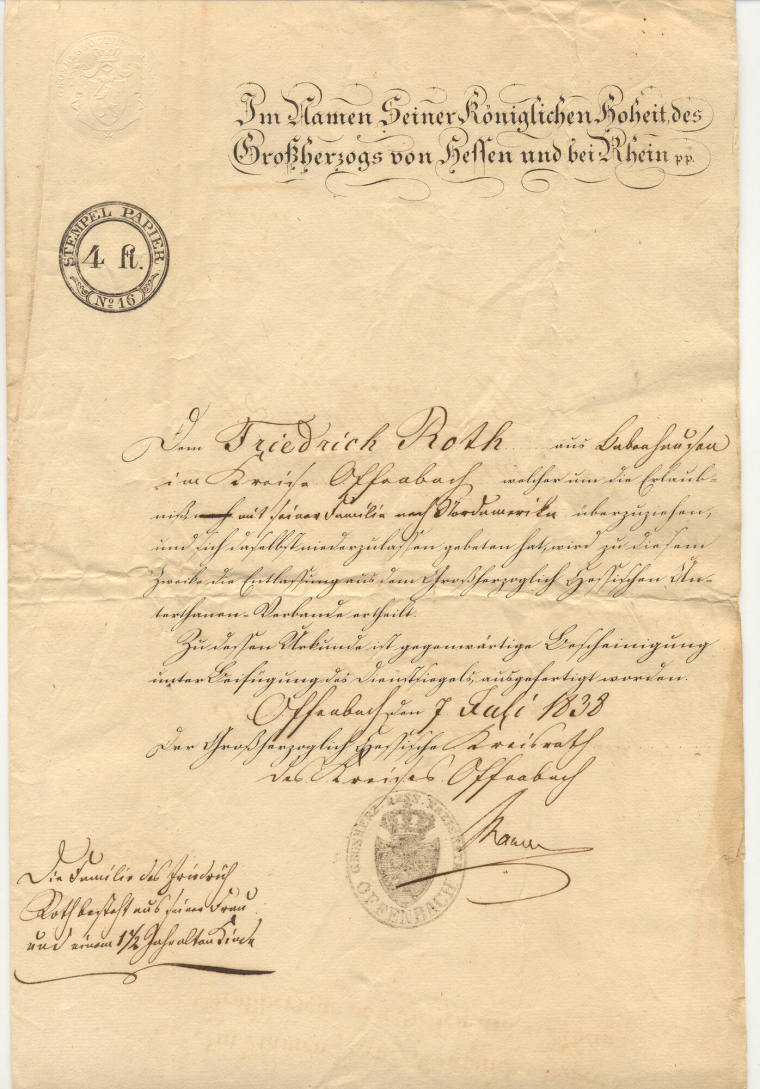 Im Namen Seiner Königlichen Hoheit, des
Großherzogs von Hessen und bei Rhein pp.
STEMPEL PAPIER
4 fl.
No 16
Dem Friedrich Roth aus Babenhausen
im Kreise Offenbach welcher um die Erlaub-
niß mit seiner Familie nach Nordamerika überzuziehen,
und sich daselbst niederzulassen gebeten hat, wird zu diesem
Zwecke die Entlassung aus dem Großherzoglich Hessischen Un-
terthanen-Verbande ertheilt.
Zu dessen Urkunde ist gegenwärtige Bescheinigung
unter Beifügung des Dienstsiegels, ausgefertigt worden.
Offenbach, den 7 Juli 1838
Der Großherzoglich Hessische Kreisrath
des Kreises Offenbach
GROSHERZ. HESS.
OFFENBACH
Die Familie des Friedrich
Roth besteht aus seiner Frau
und einem 1½ Jahr alten Kinde